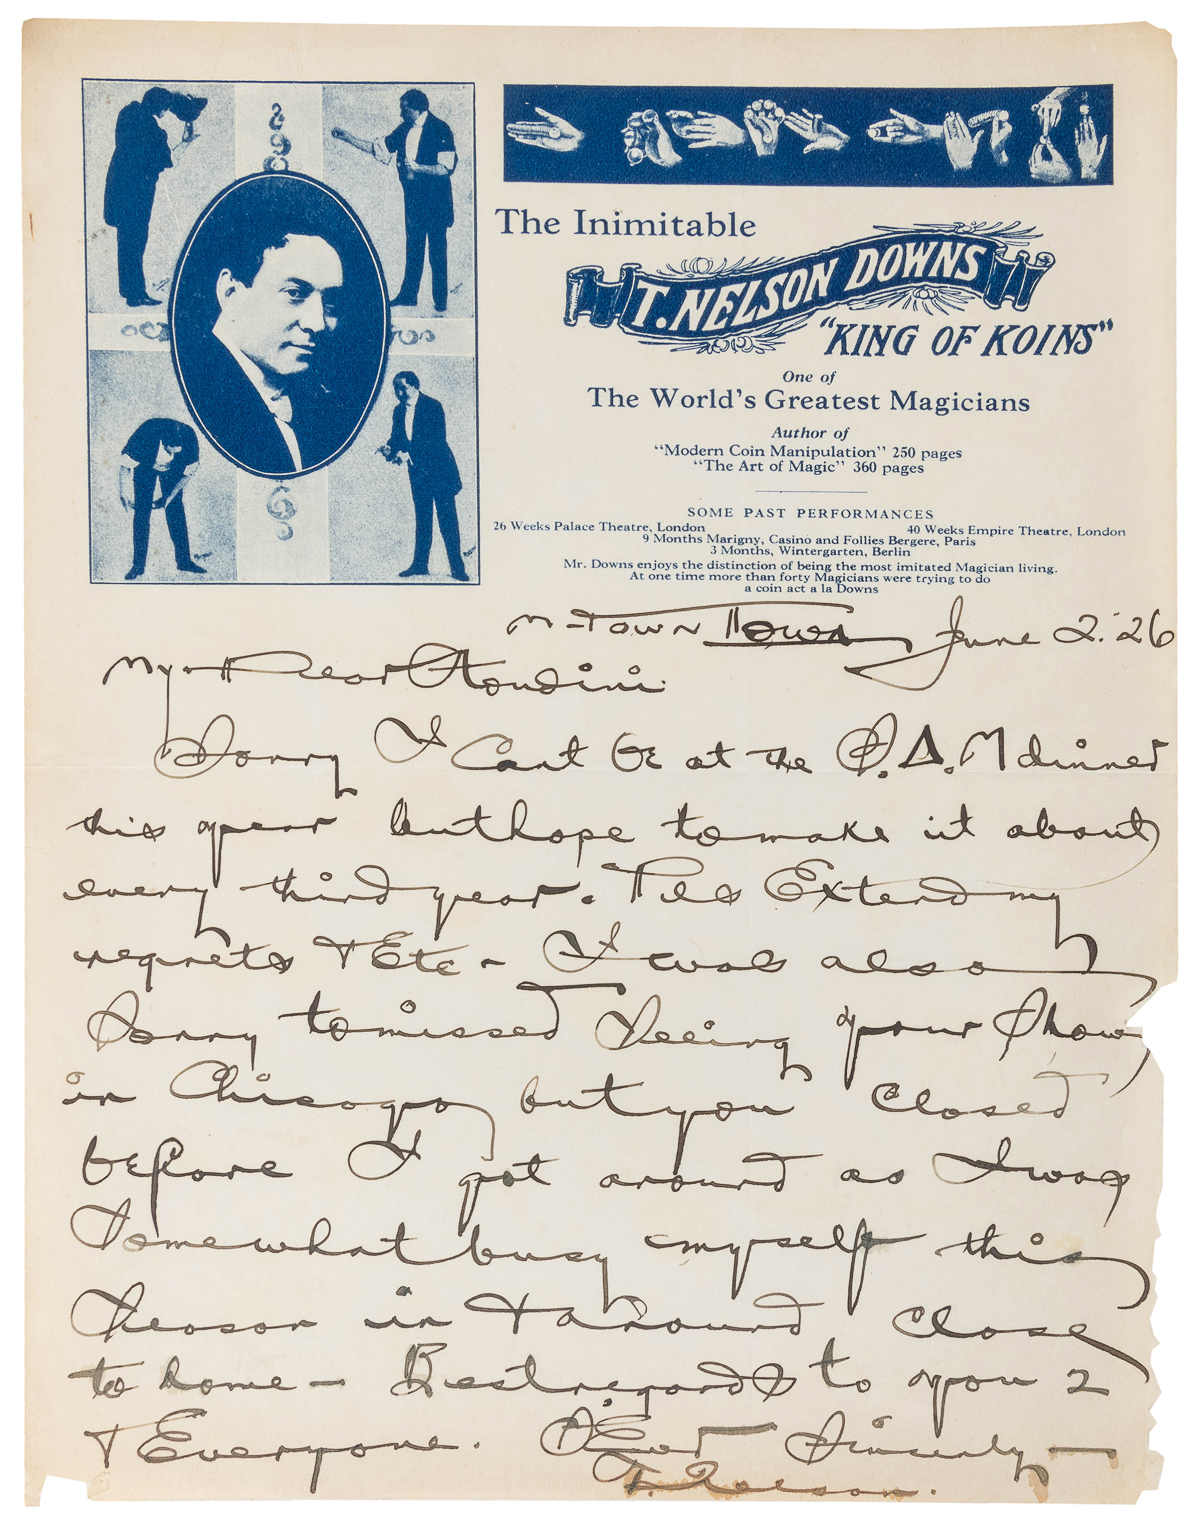 The Inimitable
T. NELSON DOWNS
"KING OF KOINS"
One of
The World's Greatest Magicians
Author of
"Modern Coin Manipulation" 250 pages
"The Art of Magic" 360 pages
SOME PAST PERFORMANCES
26 Weeks Palace Theatre, London 40 Weeks Empire Theatre, London
9 Months Marigny, Casino and Follies Bergere, Paris
3 Months, Wintergarten, Berlin
Mr. Downs enjoys the distinction of being the most imitated Magician living.
At one time more than forty Magicians were trying to do
a coin act a la Downs
M-Town Iowa June 2. '26
My Dear Houdini
Sorry I Cant be at the S.A.M dinner
this year but hope to make it about
every third year. Pls Extend my
regrets & Etc - I was also
Sorry to missed Seeing your Show
in Chicago but you closed
before I got around as I was
Somewhat busy myself this
Season in & around close
to home - Best regards to you 2
& Everyone. Ever Sincerely -
T. Nelson.